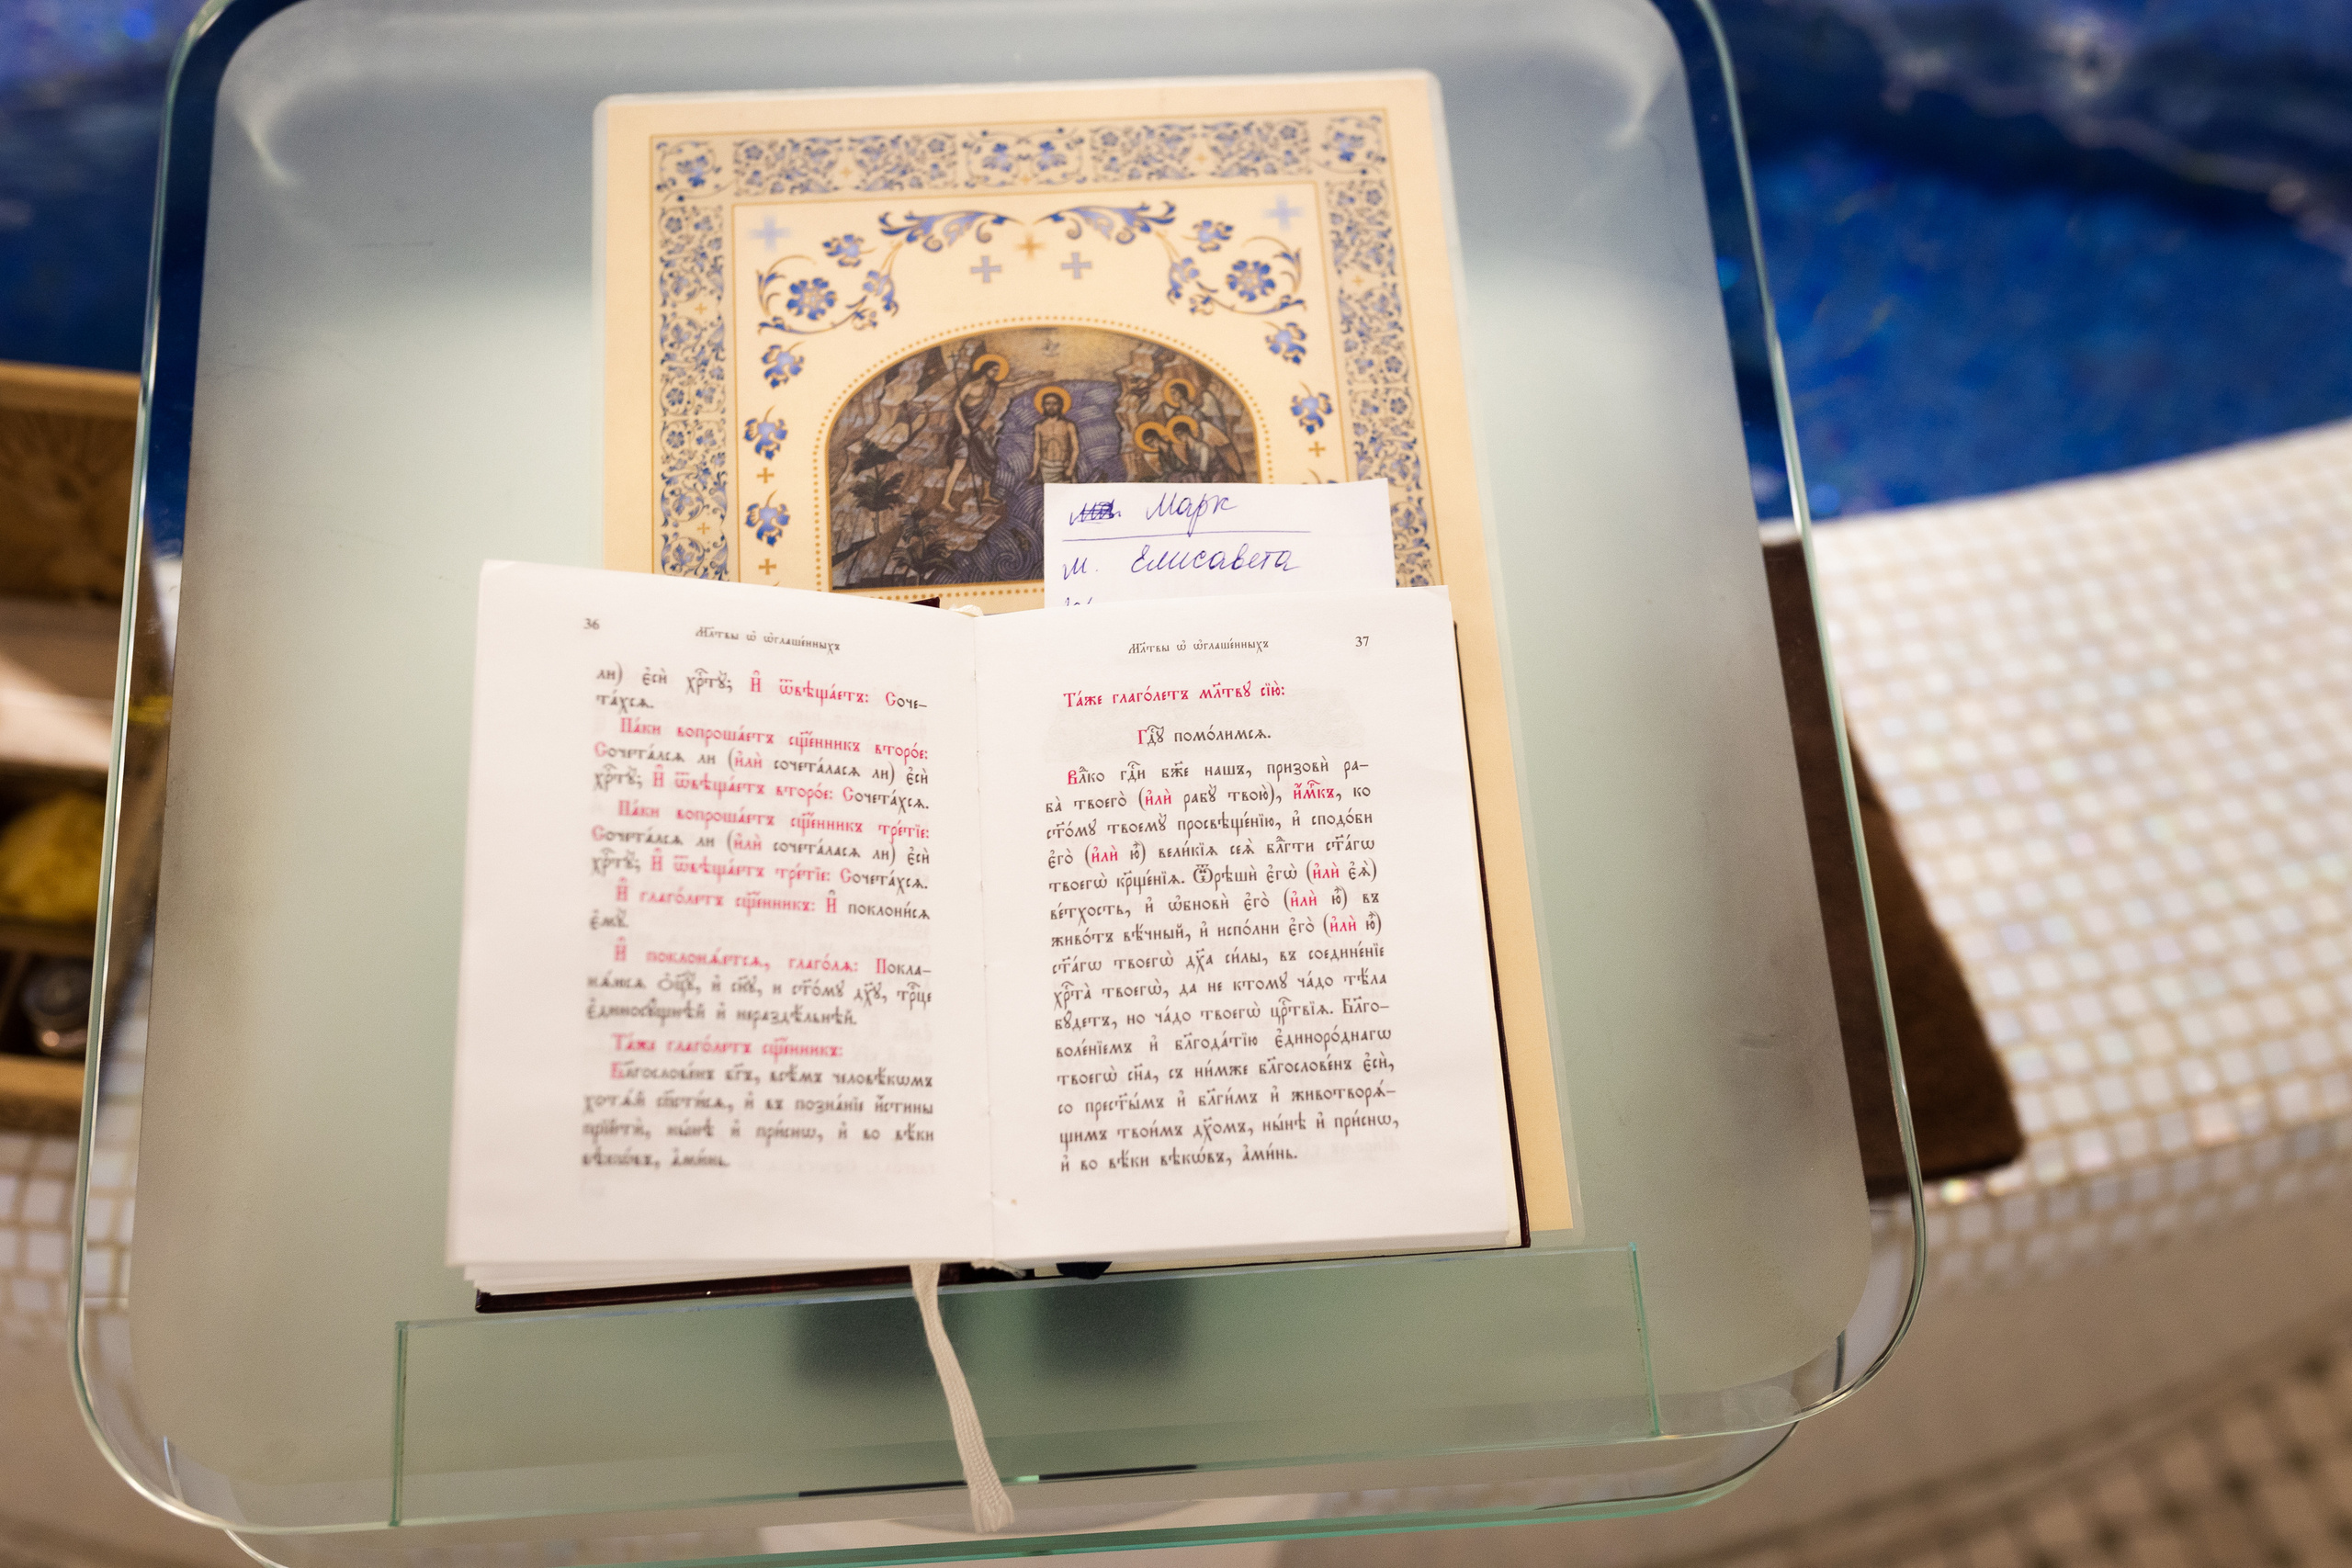 Марк
м. Елисавета
36
Мл҃твы ѡ҆ ѡ҆глаше́нныхъ
ли) є҆сѝ хрⷭ҇тꙋ̀; И҆ ѿвѣща́етъ: Соче-
та́хсѧ.
Па́ки вопроша́етъ сщ҃е́нникъ второ́е:
Сочета́лсѧ ли (и҆лѝ сочета́ласѧ ли) є҆сѝ
хрⷭ҇тꙋ̀; И҆ ѿвѣща́етъ второ́е: Сочета́хсѧ.
Па́ки вопроша́етъ сщ҃е́нникъ тре́тїе:
Сочета́лсѧ ли (и҆лѝ сочета́ласѧ ли) є҆сѝ
хрⷭ҇тꙋ̀; И҆ ѿвѣща́етъ тре́тїе: Сочета́хсѧ.
И҆ глаго́летъ сщ҃е́нникъ: И҆ поклони́сѧ
є҆мꙋ̀.
И҆ поклонѧ́етсѧ, глаго́лѧ: Покла-
нѧ́юсѧ ѻ҆ц҃ꙋ̀, и҆ сн҃ꙋ, и҆ ст҃о́мꙋ дх҃ꙋ, трⷪ҇цѣ
є҆диносꙋ́щнѣй и҆ нераздѣ́льнѣй.
Та́же глаго́летъ сщ҃е́нникъ:
Блгⷭ҇ове́нъ бг҃ъ, всѣ̑мъ человѣ́кѡмъ
хотѧ́й сп҃сти́сѧ, и҆ въ позна́нїе и҆́стины
прїитѝ, ны́нѣ и҆ при́снѡ, и҆ во вѣ́ки
вѣкѡ́въ, а҆ми́нь.
Мл҃твы ѡ҆ ѡ҆глаше́нныхъ
37
Та́же глаго́летъ мл҃твꙋ сїю̀:
Гдⷭ҇ꙋ помо́лимсѧ.
Влⷣко гдⷭ҇и бж҃е нашъ, призовѝ ра-
ба̀ твоего̀ (и҆лѝ рабꙋ̀ твою̀), и҆́мкъ, ко
ст҃о́мꙋ твоемꙋ̀ просвѣще́нїю, и҆ сподо́би
є҆го̀ (и҆лѝ ю҆̀) вели́кїѧ сеѧ̀ блгⷣти ст҃а́гѡ
твоегѡ̀ крⷳ҇ще́нїѧ. Ѿрѣшѝ є҆гѡ̀ (и҆лѝ є҆ѧ̀)
ве́тхость, и҆ ѡ҆бновѝ є҆го̀ (и҆лѝ ю҆̀) въ
живо́тъ вѣ́чный, и҆ испо́лни є҆го̀ (и҆лѝ ю҆̀)
ст҃а́гѡ твоегѡ̀ дх҃а си́лы, въ соедине́нїе
хрⷭ҇та̀ твоегѡ̀, да не ктомꙋ̀ ча́до тѣ́ла
бꙋ́детъ, но ча́до твоегѡ̀ црⷭ҇твїѧ. Бл҃го-
воле́нїемъ и҆ бл҃года́тїю є҆диноро́днагѡ
твоегѡ̀ сн҃а, съ ни́мже бл҃гослове́нъ є҆сѝ,
со прест҃ы́мъ и҆ бл҃ги́мъ и҆ животворѧ́-
щимъ твои́мъ дх҃омъ, ны́нѣ и҆ при́снѡ,
и҆ во вѣ́ки вѣкѡ́въ, а҆ми́нь.